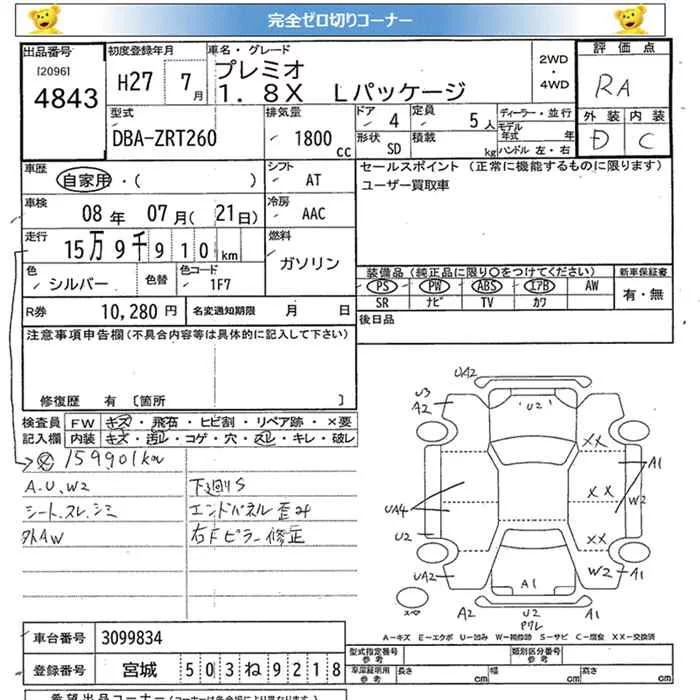 完全ゼロ切りコーナー
出品番号 初度登録年月 車名・グレード 2WD ・ 4WD 評価点
[2096] 4843 H27 7月 プレミオ RA
1.8X Lパッケージ
型式 排気量 ドア 定員 ディーラー・並行 外装 内装
DBA-ZRT260 1800cc 4 5人 モデル年式 年 D C
形状 SD 積載 kg ハンドル 左・右
車歴 シフト セールスポイント (正常に機能するものに限ります)
自家用・( ) AT ユーザー買取車
車検 冷房
08年 07月(21日) AAC
走行 燃料
15万9千910km ガソリン
色 色替 色コード 装備品(純正品に限り○をつけてください) 新車保証書
シルバー 1F7 PS PW ABS エアB AW 有・無
R券 10,280円 名変通知期限 月 日 SR ナビ TV カワ
注意事項申告欄(不具合内容等は具体的に記入して下さい) 後日品
修復歴 有 [箇所 ]
検査員 FW キズ・飛石・ヒビ割・リペア跡・×要
記入欄 内装 キズ・汚レ・コゲ・穴・スレ・キレ・破レ
159901km
A.U.W2 下廻りS
シート.スレ.シミ エンドパネル歪み
外AW 右Fピラー修正
UA2
U3
A2
U2
XX
A1
XX
W2
UA4
U2
XX
UA2
A1
W2
A1
スペア
A2 U2 A1
ワレ
A-キズ E-エクボ U-凹み W-補修跡 S-サビ C-腐食 XX-交換済
車台番号 3099834
型式指定番号 参考 類別区分番号 参考
登録番号 宮城 503ね9218
車庫証明用 参考 長さ cm 幅 cm 高さ cm
希望出品コーナー